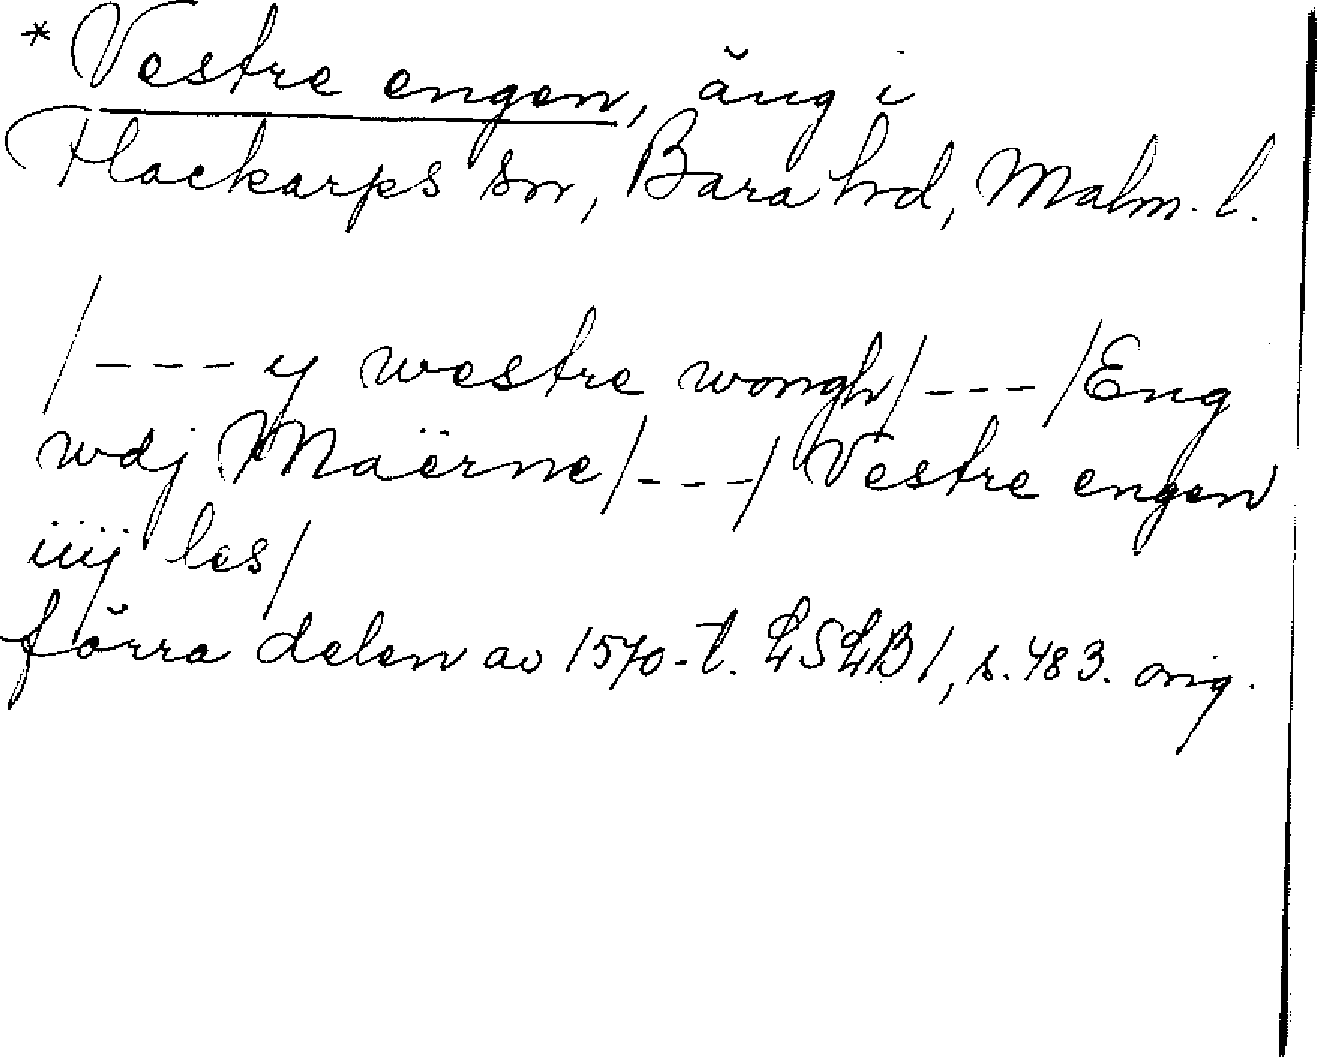 * Vestre engen, äng i
Flackarps sn, Bara hd, Malm. l.
/--- y westre wongh/---/Eng
wdj Maërne/---/Vestre engen
iiij les/
förra delen av 1570-t. LSLB 1, s. 483. orig.